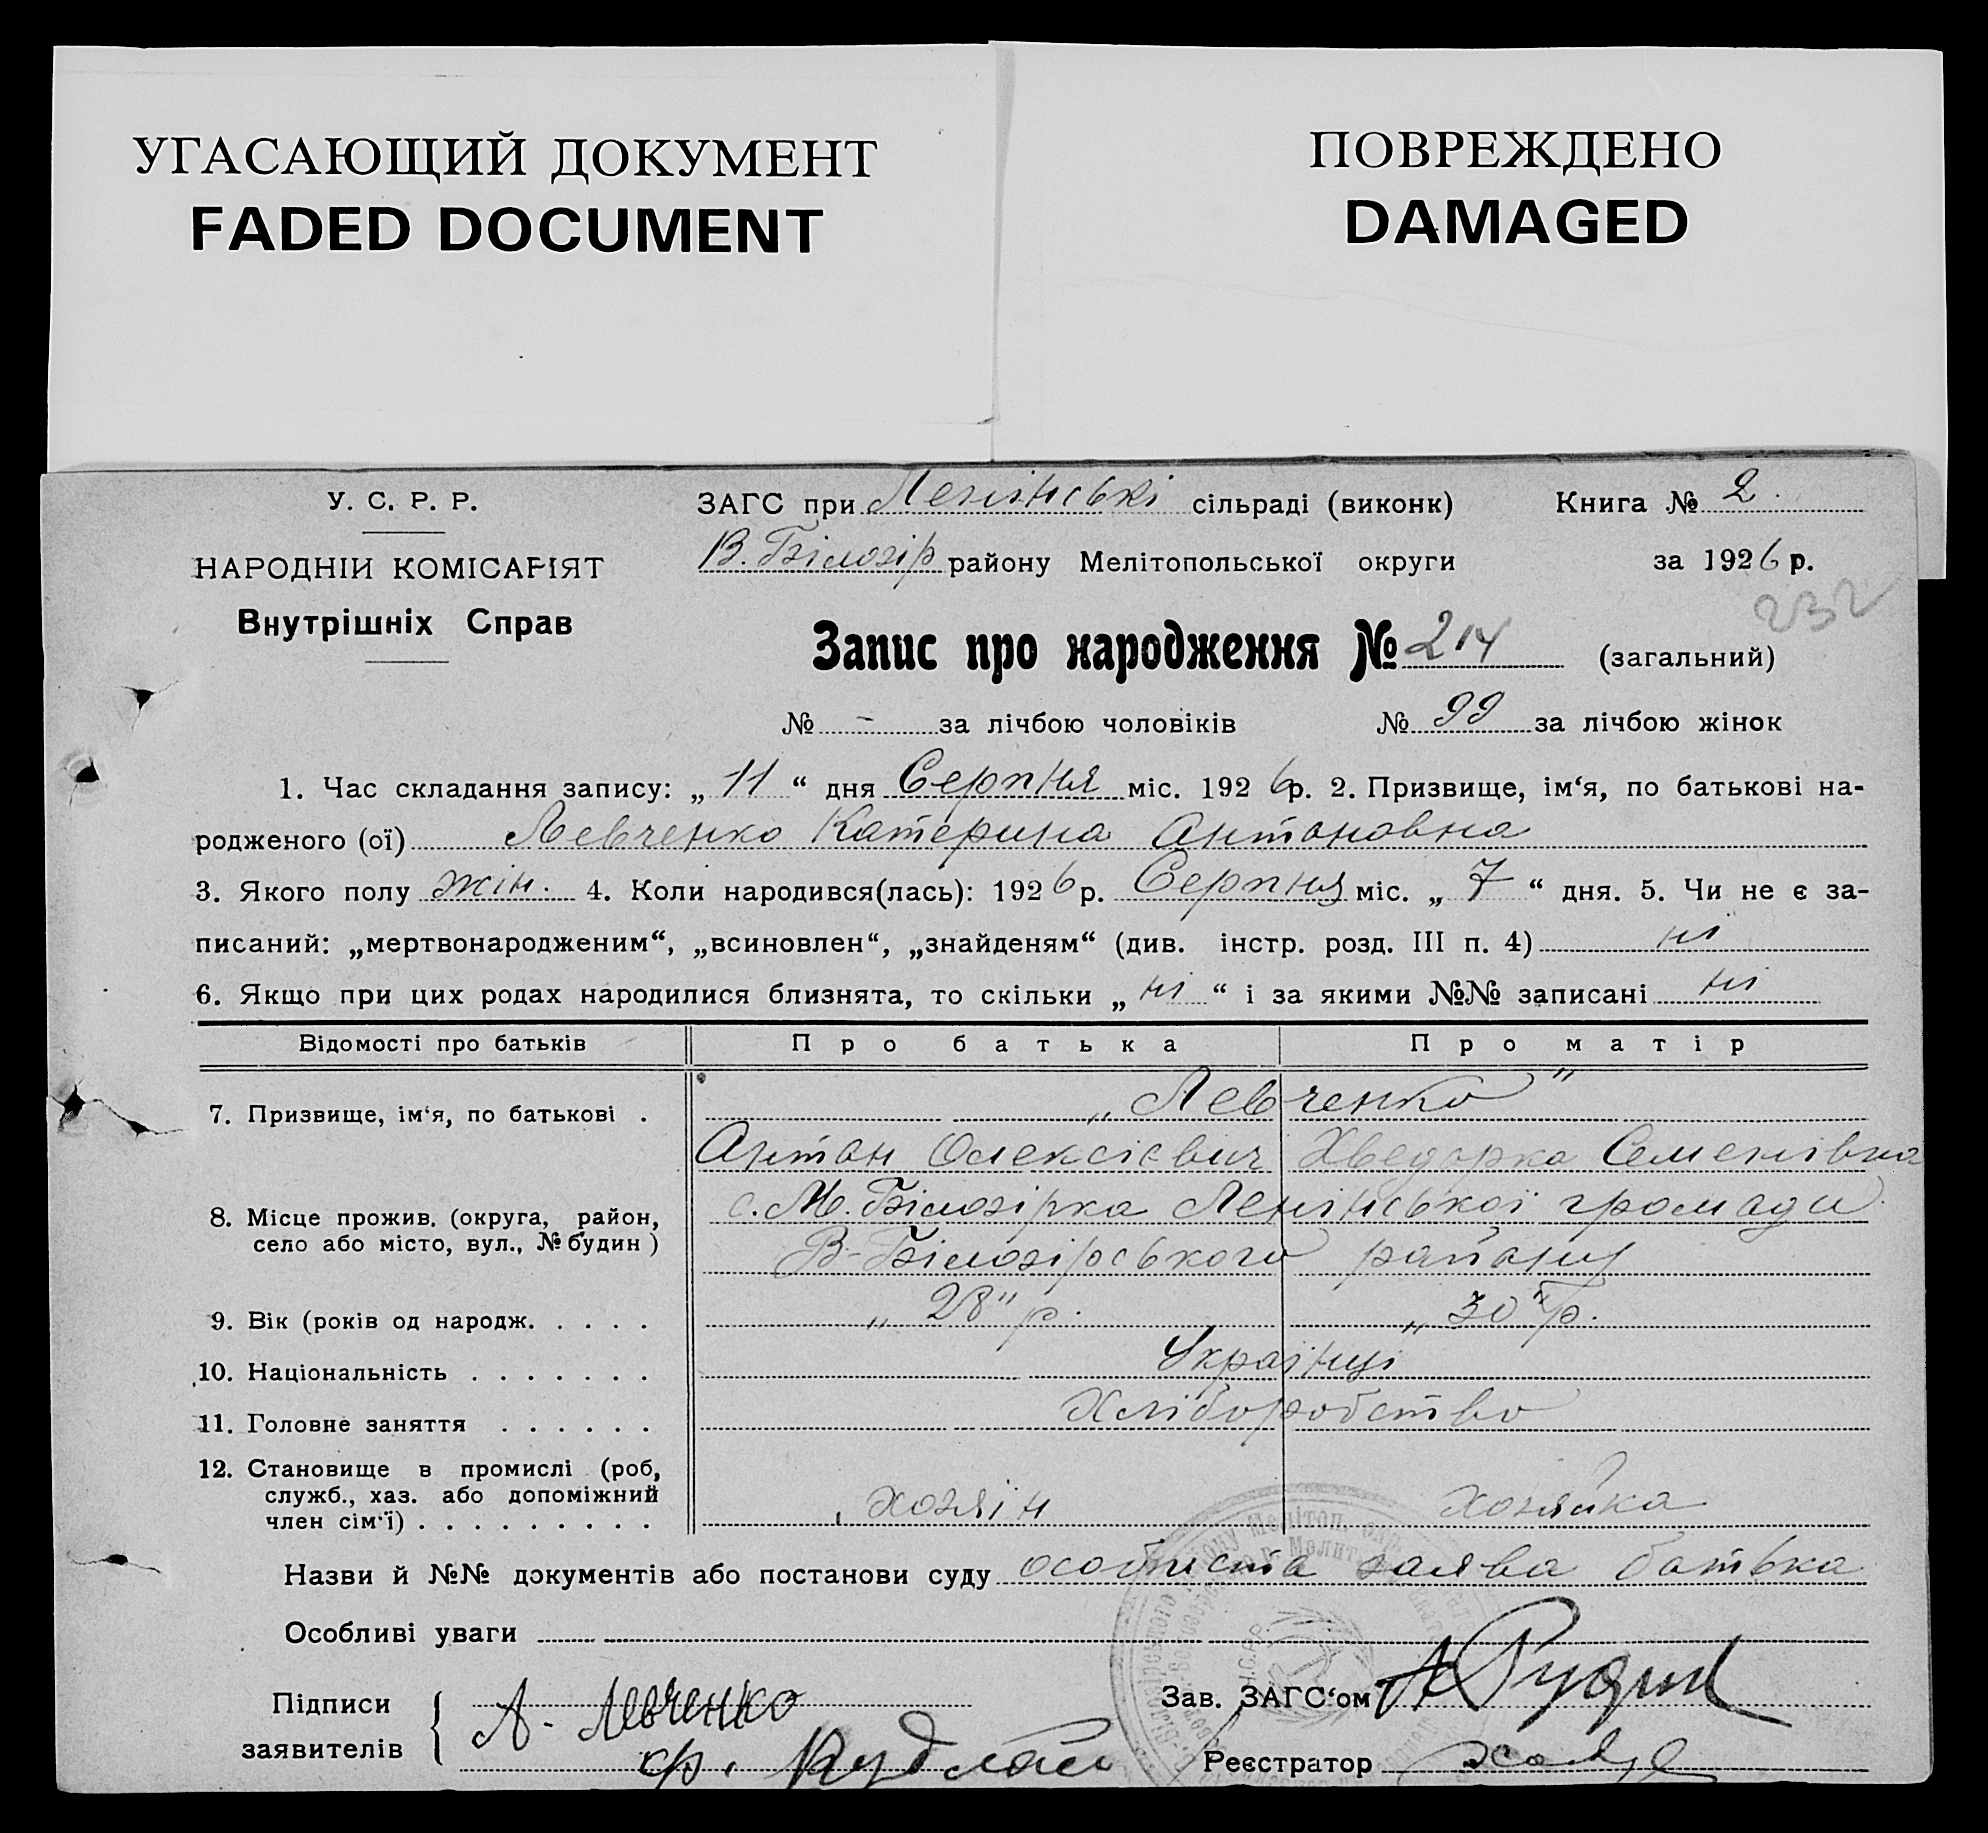 УГАСАЮЩИЙ ДОКУМЕНТ
FADED DOCUMENT
ПОВРЕЖДЕНО
DAMAGED
У. С. Р. Р.
НАРОДНІЙ КОМІСАРІЯТ
Внутрішніх Справ
ЗАГС при Ленінські сільраді (виконк) Книга № 2.
В. Білозір району Мелітопольської округи за 1926 р.
232
Запис про народження № 214 (загальний)
№ - за лічбою чоловіків № 99 за лічбою жінок
1. Час складання запису: „ 11 “ дня Серпня міс. 1926 р. 2. Призвище, ім‘я, по батькові на-
родженого (ої) Левченко Катерина Антоновна
3. Якого полу жін. 4. Коли народився(лась): 1926 р. Серпня міс. „ 7 “ дня. 5. Чи не є за-
писаний: „мертвонародженим“, „всиновлен“, „знайденям“ (див. інстр. розд. III п. 4) ні
6. Якщо при цих родах народилися близнята, то скільки „ ні “ і за якими №№ записані ні
Відомості про батьків Про батька Про матір
7. Призвище, ім‘я, по батькові . „Левченко"
Антон Олексієвич Хведорка Семенівна
8. Місце прожив. (округа, район, село або місто, вул., № будин ) с. М. Білозірка Ленінської громади
В-Білозірського району
9. Вік (років од народж. . . . . „28" р. „30" р.
10. Національність . . . . . . . Українці
11. Головне заняття . . . . . . Хліборобство
12. Становище в промислі (роб, служб., хаз. або допоміжний член сім‘ї) . . . . . . . . . хозяін хозяйка
Назви й №№ документів або постанови суду особиста заява батька
Особливі уваги
Підписи заявителів А. Левченко
Ф. Кудлай
Зав. ЗАГС‘ом
Реєстратор